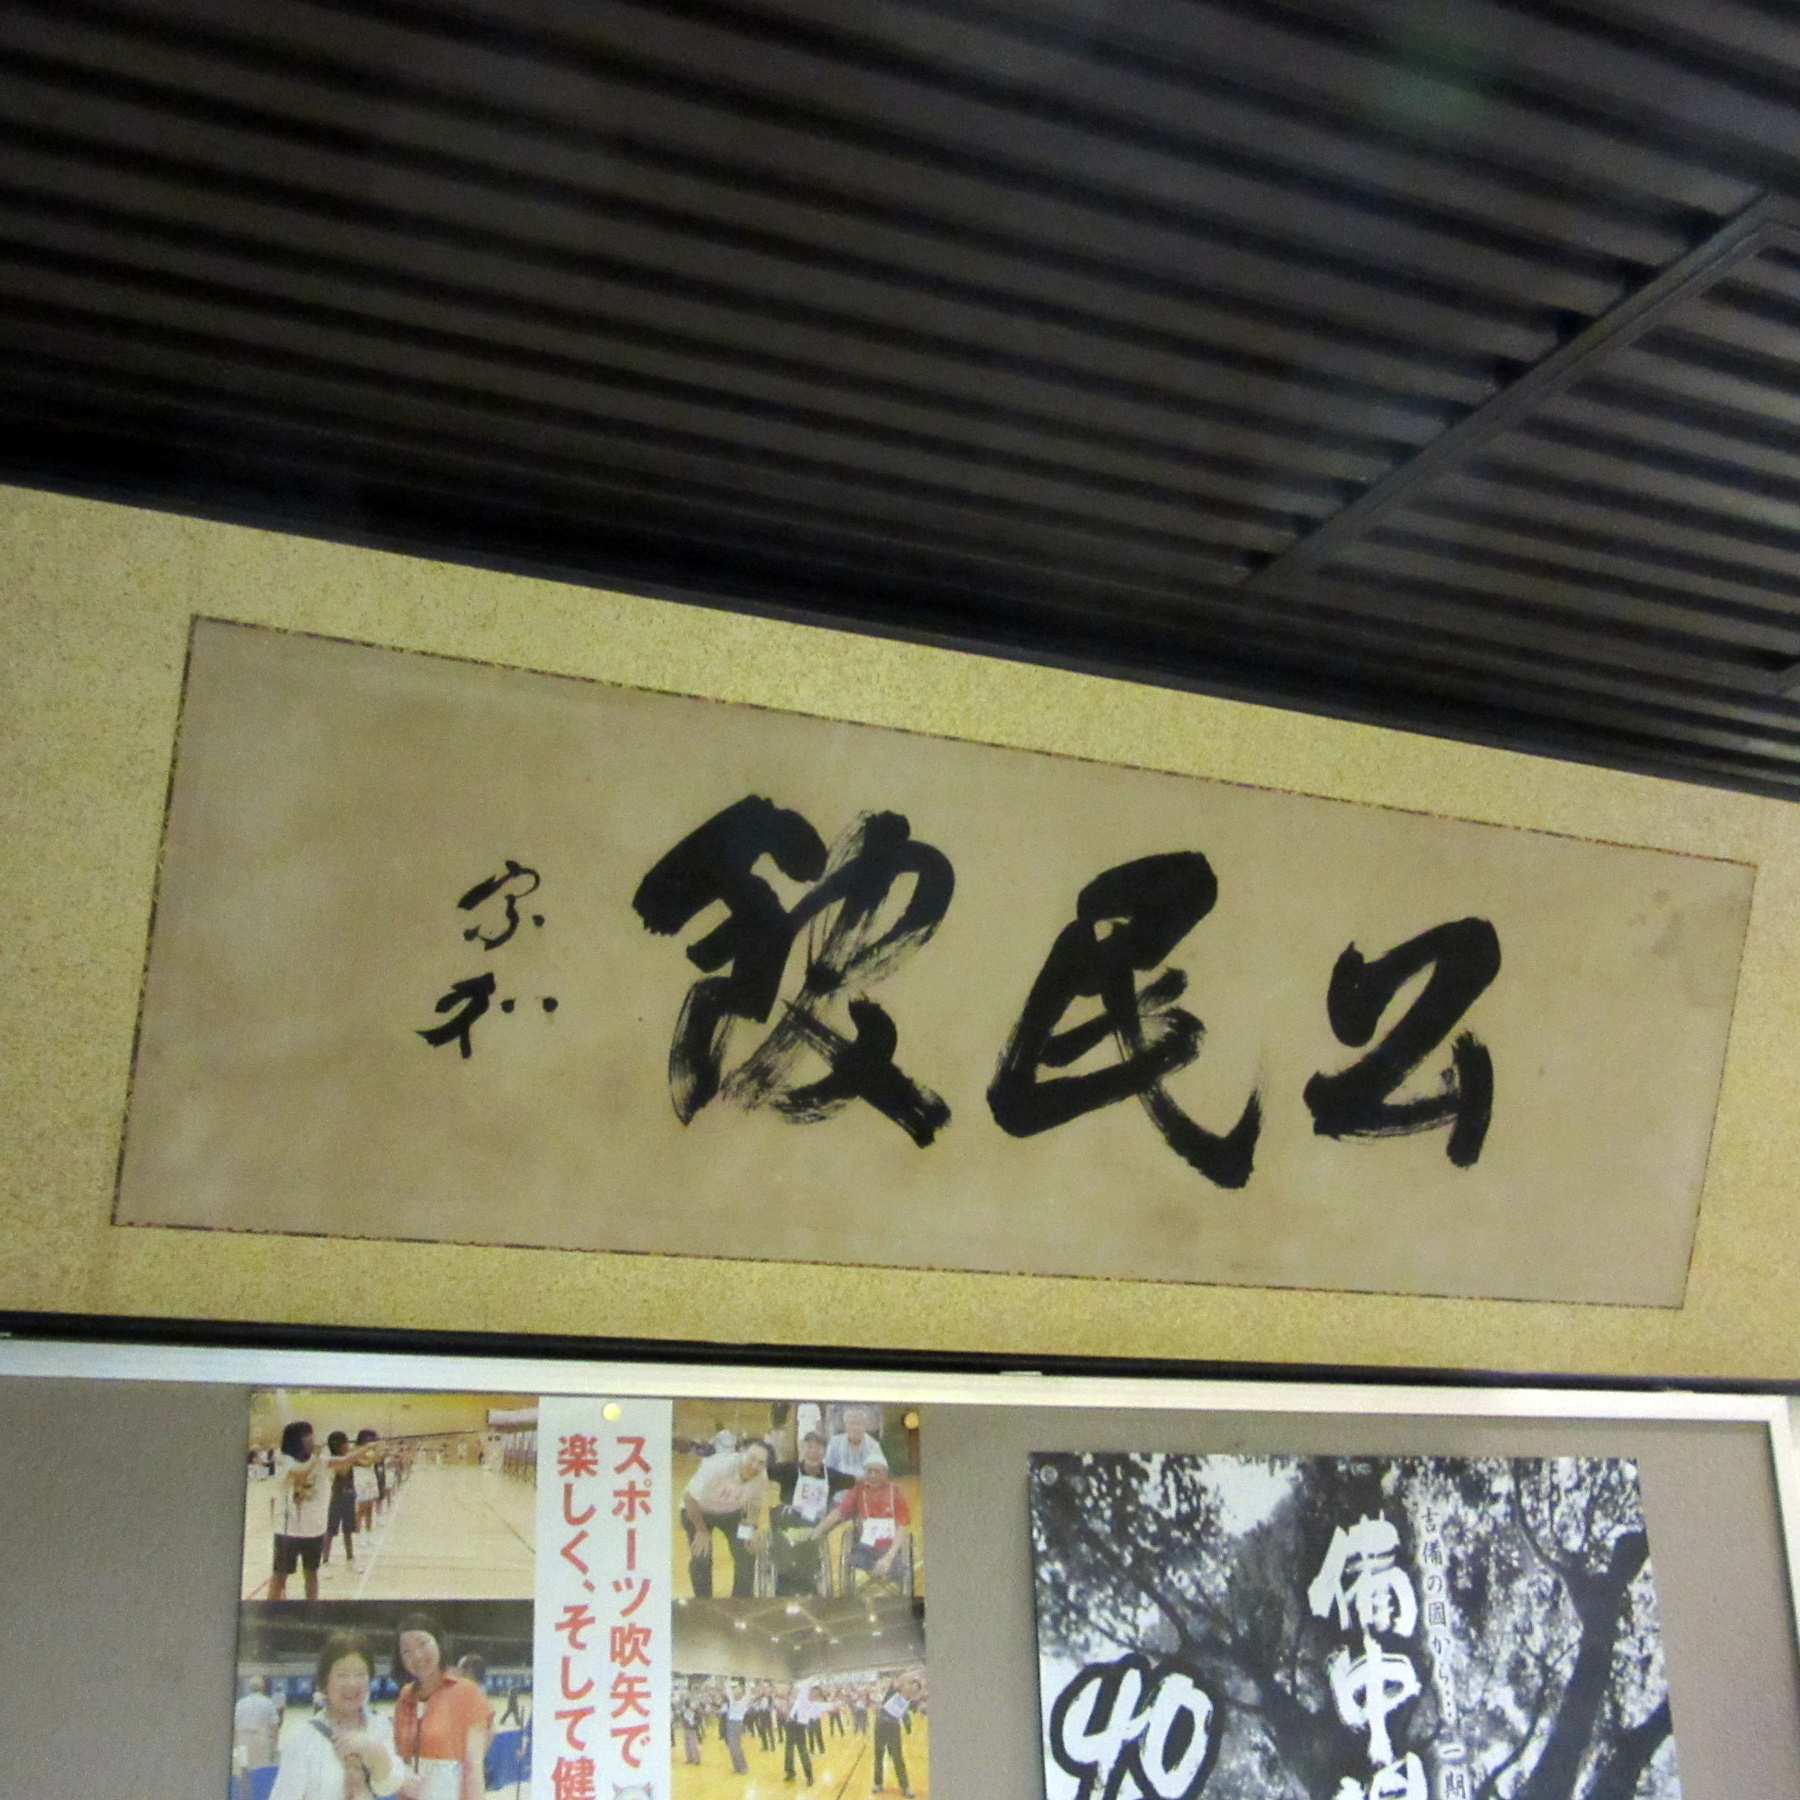 公民館
宗和
スポーツ吹矢で
楽しく、そして健
吉備の國から… 一期
備中
40